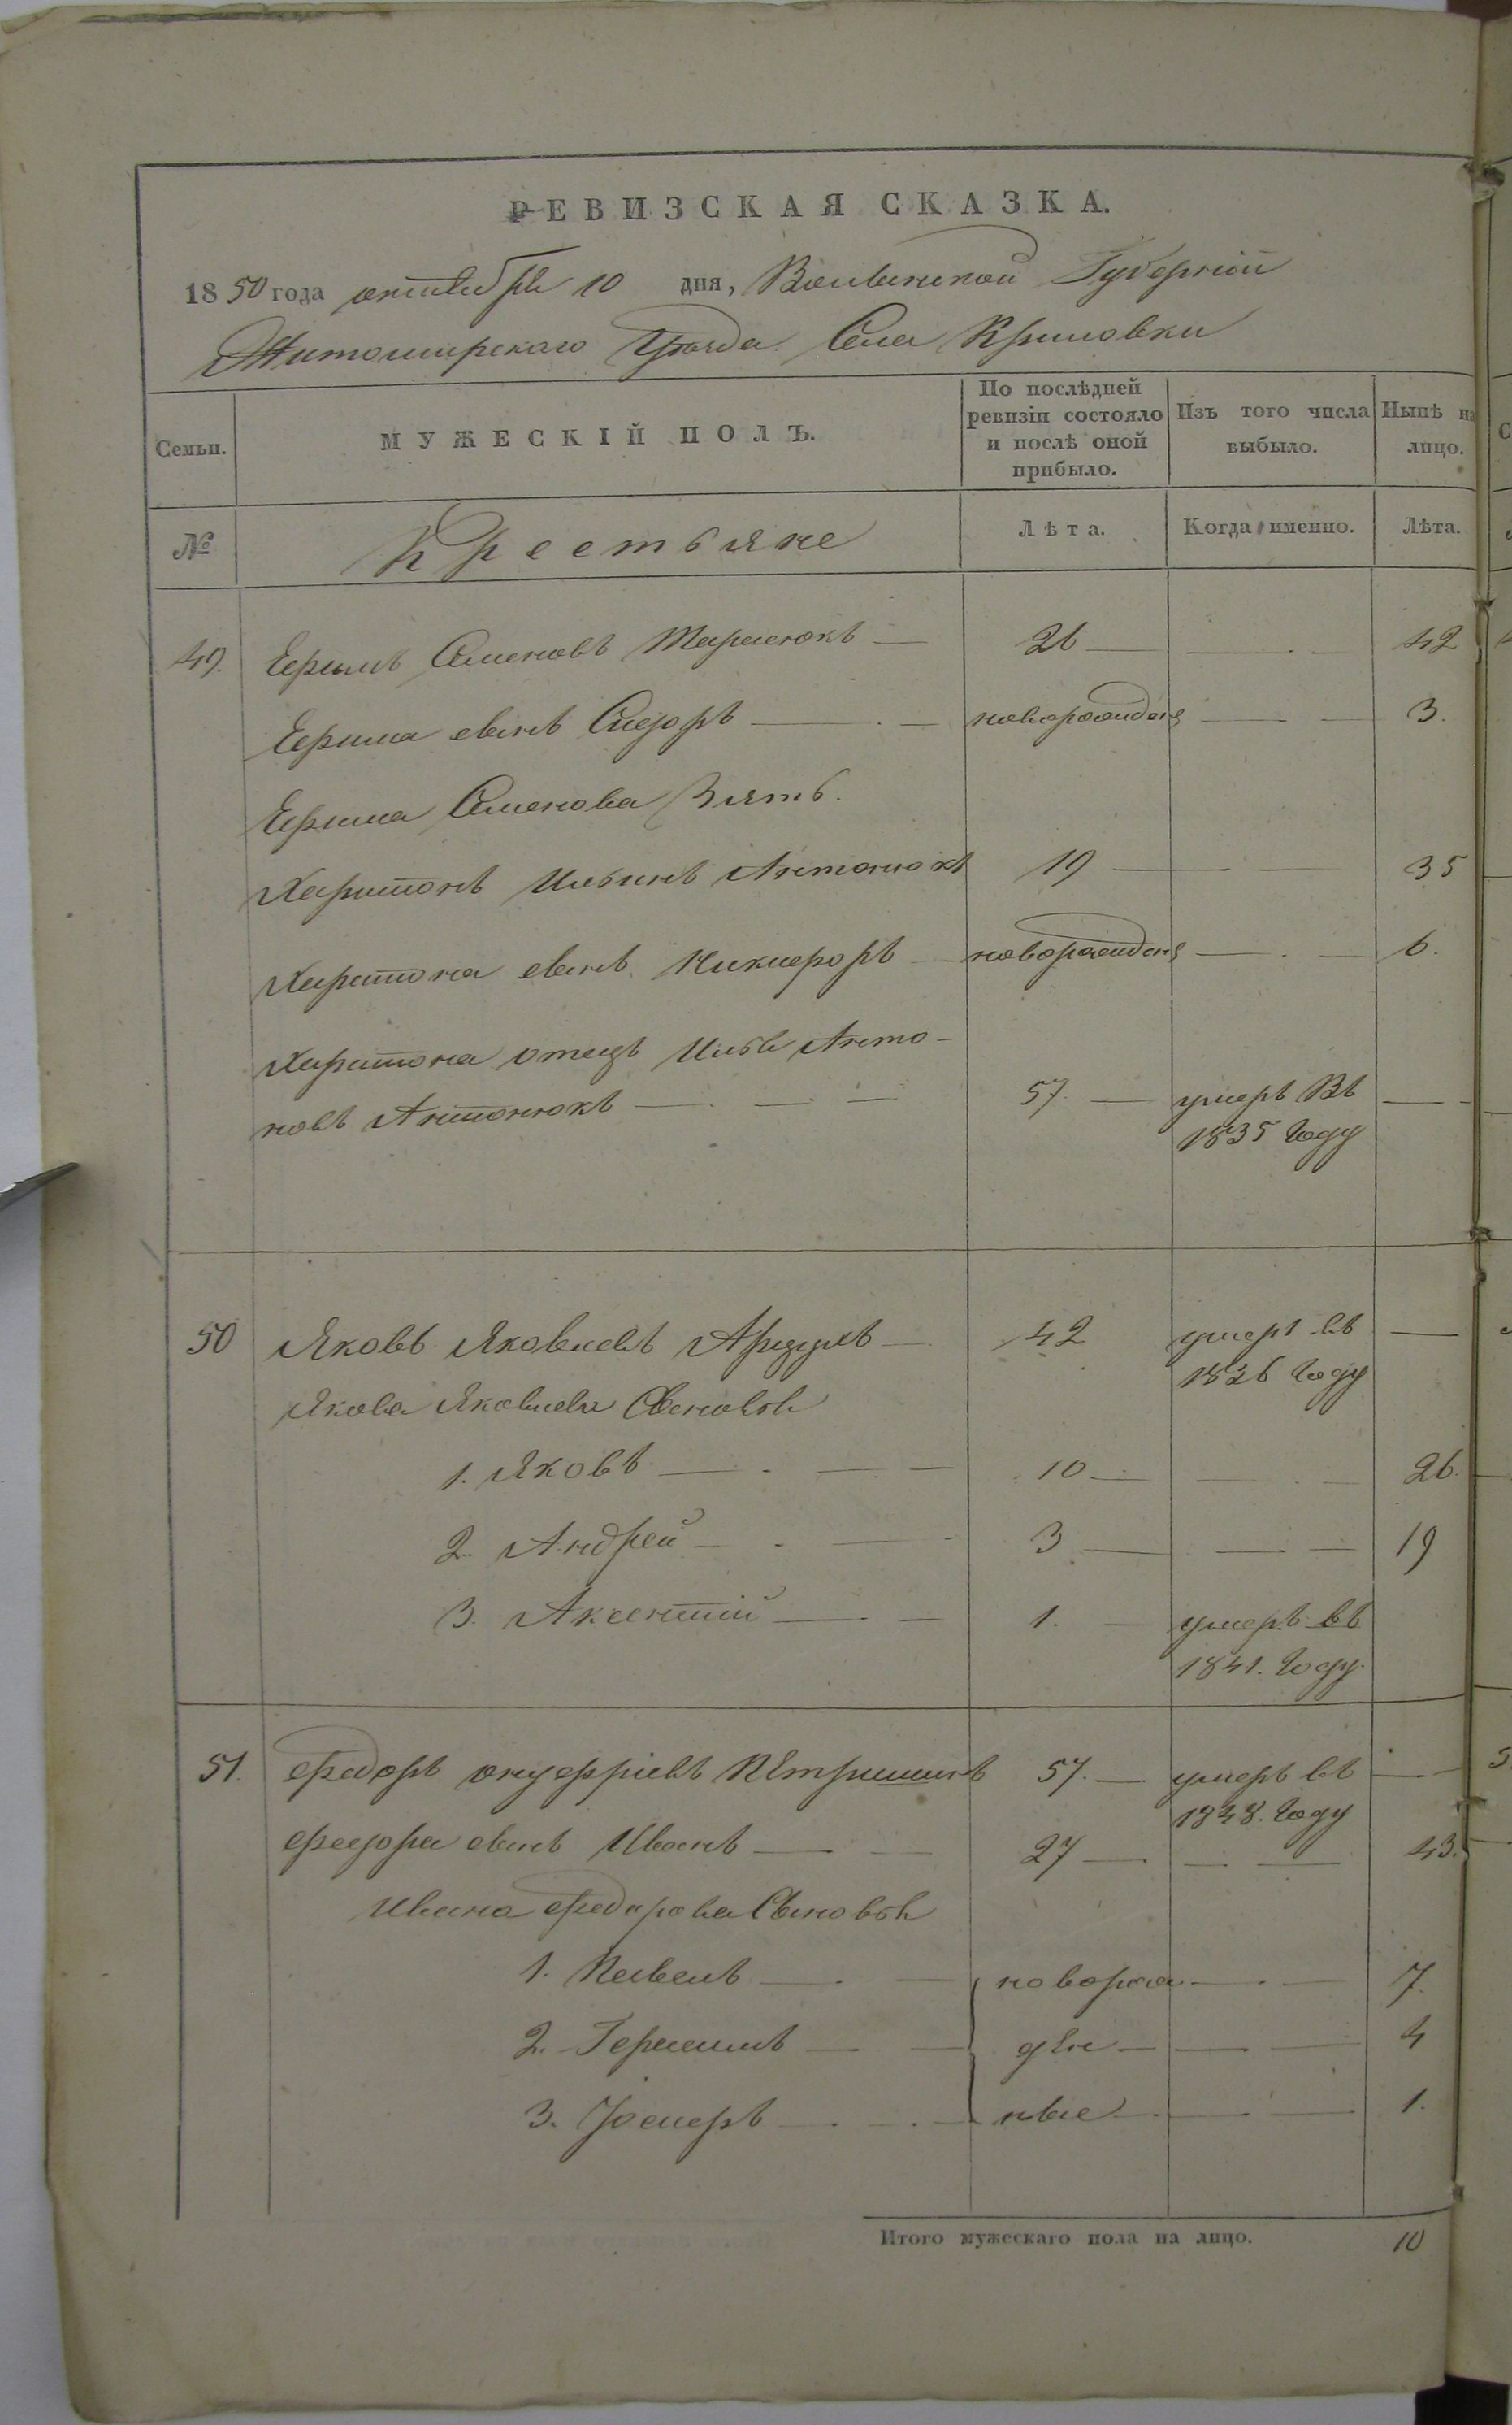 РЕВИЗСКАЯ СКАЗКА.
1850 года октября 10 дня, Волынской Губернии
Житомирского Уѣзда Села Крыловки
Семьи. МУЖЕСКІЙ ПОЛЪ. По послѣдней ревизіи состояло и послѣ оной прибыло. Изъ того числа выбыло. Нынѣ на лицо.
№ Крестьяне Лѣта. Когда именно. Лѣта.
49. Ефимъ Семеновъ Тарасюкъ 26 42
Ефима сынъ Сидоръ новорожден 3.
Ефима Семенова Зять.
Харитонъ Ильинъ Антонюкъ 19 35
Харитона сынъ Никифоръ новорожден 6.
Харитона отецъ Илья Анто-
новъ Антонюкъ 57. умеръ Въ
1835 Году
50 Яковъ Яковлевъ 42 умеръ въ
1836 Году
Якова Яковлева Сыновья
1. Яковъ 10 26.
2. Андрей 3 19
3. Аксентий 1. умеръ въ
1841. Году.
51. Федоръ онуфріевъ Петришинъ 57. умеръ въ
1848. Году
Федора сынъ Иванъ 27 43.
Ивана Федорова Сыновья
1. Павелъ новорож 7.
2. Герасимъ дѣн 4
3. Іосифъ ные 1.
Итого мужескаго пола на лицо. 10